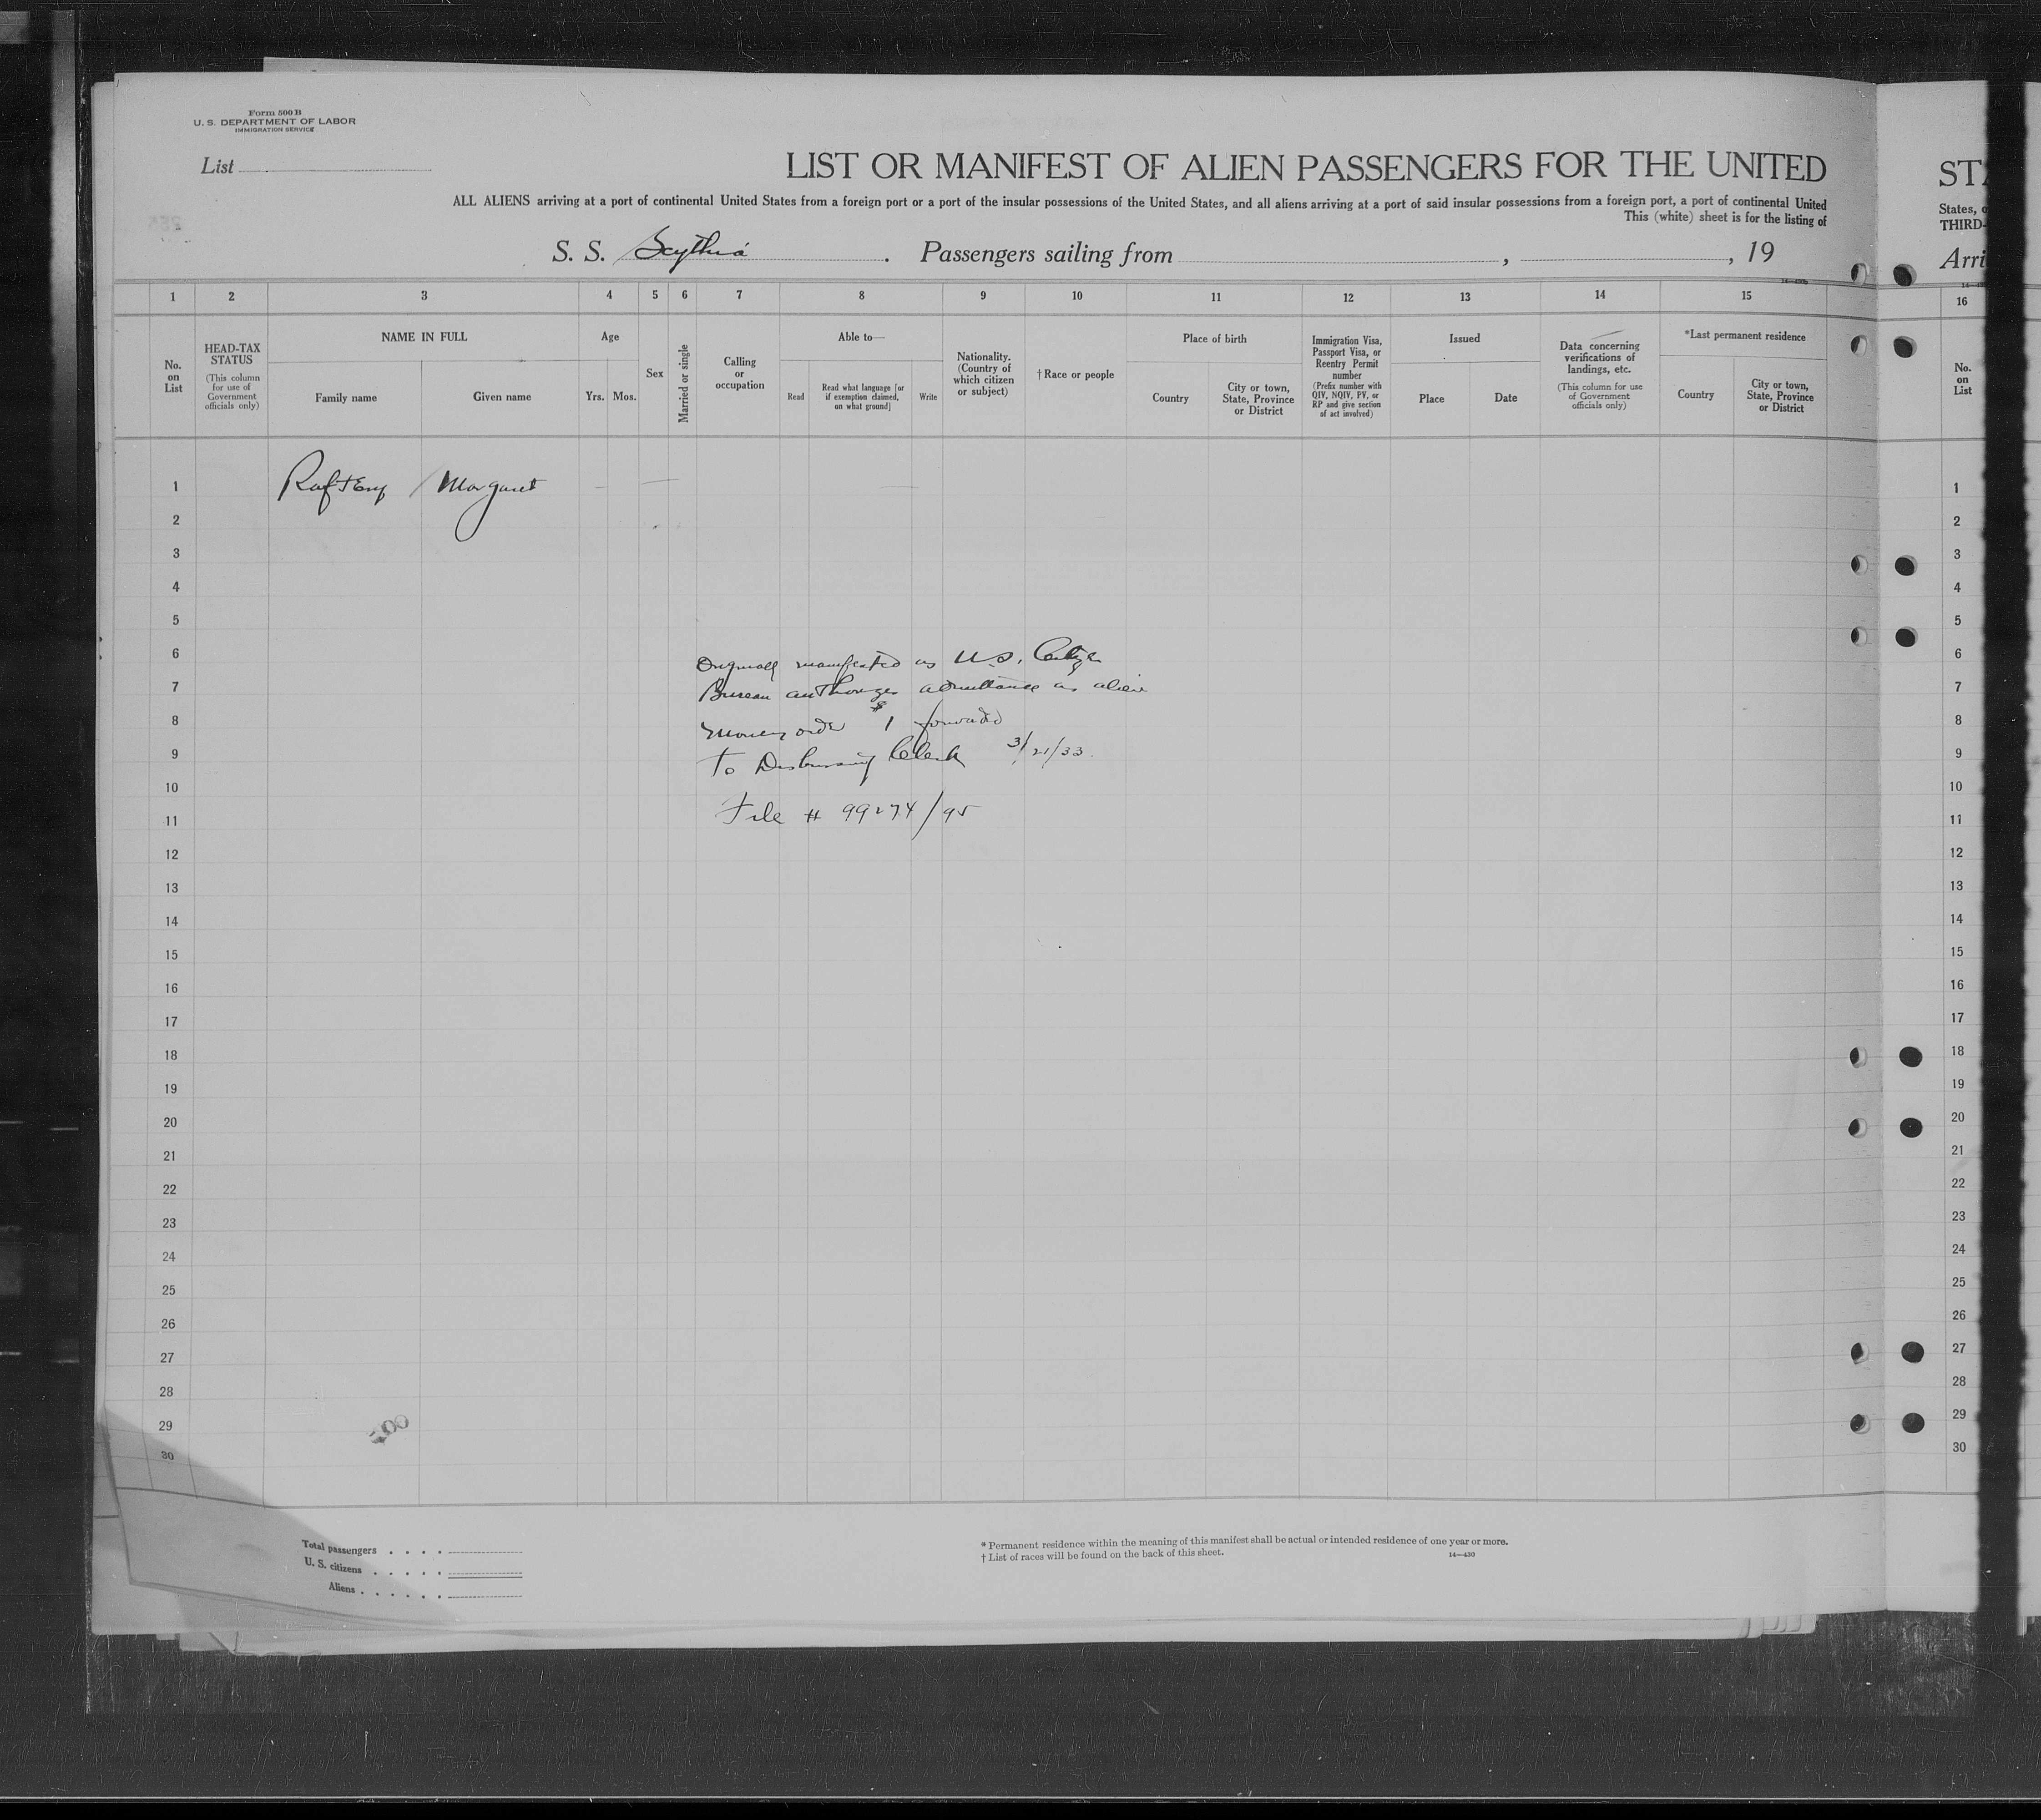 Form 500 B
U. S. DEPARTMENT OF LABOR
IMMIGRATION SERVICE
List
LIST OR MANIFEST OF ALIEN PASSENGERS FOR THE UNITED
ALL ALIENS arriving at a port of continental United States from a foreign port or a port of the insular possessions of the United States, and all aliens arriving at a port of said insular possessions from a foreign port, a port of continental United
This (white) sheet is for the listing of
S. S. Scythia . Passengers sailing from , , 19
1 2 3 4 5 6 7 8 9 10 11 12 13 14 15
No. on List
HEAD-TAX STATUS
(This column for use of Government officials only)
NAME IN FULL
Family name
Given name
Age
Yrs. Mos.
Sex
Married or single
Calling or occupation
Able to—
Read
Read what language [or if exemption claimed, on what ground]
Write
Nationality. (Country of which citizen or subject)
† Race or people
Place of birth
Country
City or town, State, Province or District
Immigration Visa, Passport Visa, or Reentry Permit number
(Prefix number with QIV, NQIV, PV, or RP and give section of act involved)
Issued
Place
Date
Data concerning verifications of landings, etc.
(This column for use of Government officials only)
*Last permanent residence
Country
City or town, State, Province or District
1 Raftery Margaret
2
3
4
5
6 Originally manifested as U.S. Citizen
7 Bureau authorizes admittance as alien
8 Money order $1 forwarded
9 To Disbursing Clerk 3/21/33.
10
11 File # 99274/95
12
13
14
15
16
17
18
19
20
21
22
23
24
25
26
27
28
29
30
Total passengers . . . .
U. S. citizens . . . . .
Aliens . . . . . .
* Permanent residence within the meaning of this manifest shall be actual or intended residence of one year or more.
† List of races will be found on the back of this sheet.
14—430
STA
States, o
THIRD-
Arri
16
No. on List
1
2
3
4
5
6
7
8
9
10
11
12
13
14
15
16
17
18
19
20
21
22
23
24
25
26
27
28
29
30